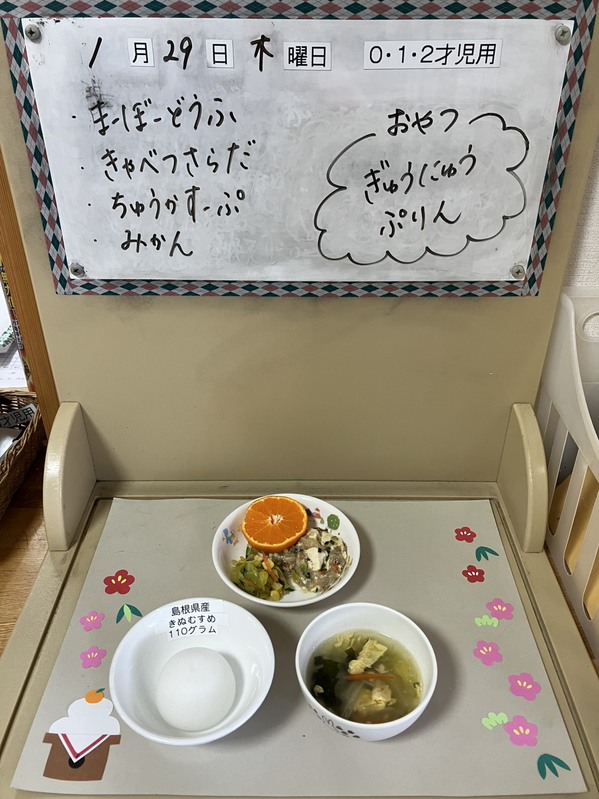 1月29日木曜日 0・1・2才児用
・まーぼーどうふ
・きゃべつさらだ
・ちゅうかすーぷ
・みかん
おやつ
ぎゅうにゅう
ぷりん
島根県産
きぬむすめ
110グラム